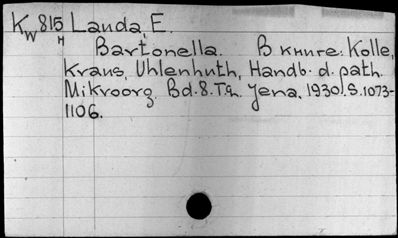 Kw 815 Landa, E.
H
Bartonella. В книге: Kolle,
Kraus, Uhlenhuth, Handb. d. path.
Mikroorg. Bd. 8. T.2. Jena, 1930. S. 1073-
1106.